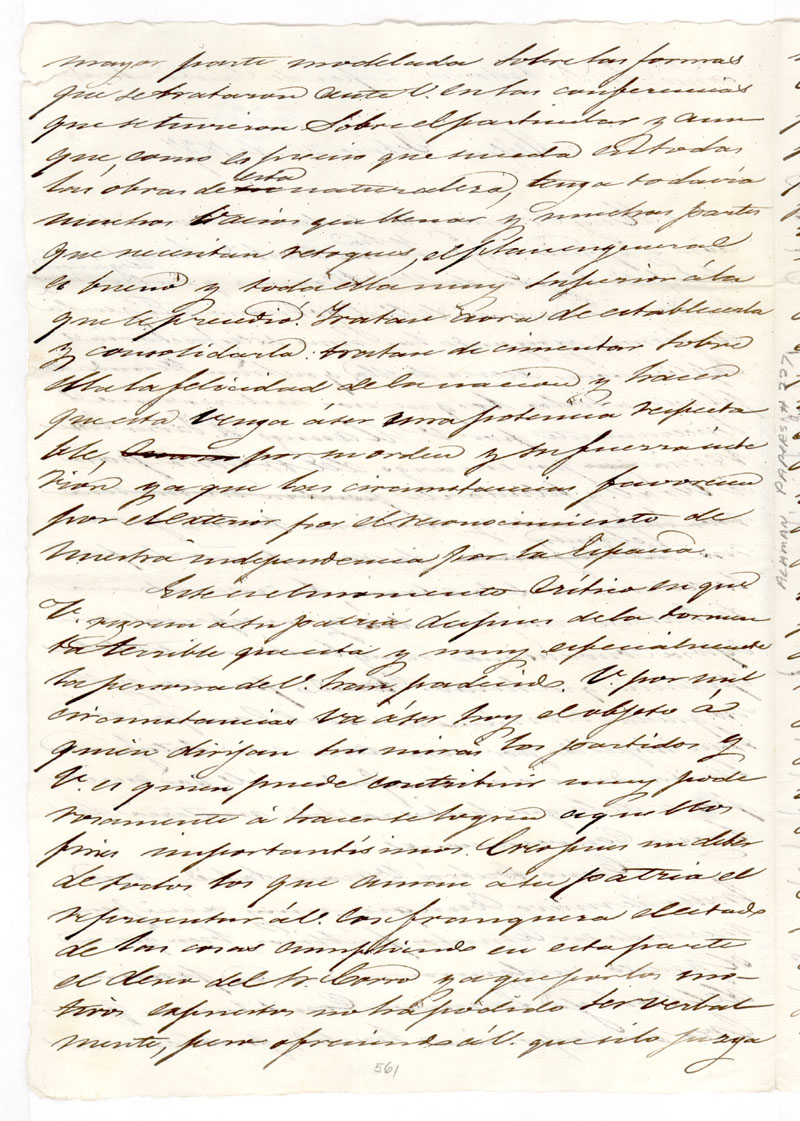 mayor parte modelada sobre las formas
que se trataron ante V. en las conferencias
que se tuvieron sobre el particular y aun
que, como es preciso que suceda en todas
las obras de esta naturaleza, tenga todavia
muchos vacios que llenar y muchas partes
que necesitan retoques, el plan en general
es bueno y toda ella muy superior á la
que le precedió. Tratase aora de establecerla
y consolidarla: tratase de cimentar sobre
ella la felicidad de la nacion y hacer
que esta venga á ser una potencia respeta
ble, por su orden y su fuerza inte
rior, ya que las circunstancias favorecen
por el exterior por el reconocimiento de
nuestra independencia por la España.
Este es el momento critico en que
V. regresa á su patria despues de la tormen
ta terrible que esta y muy especialmente
la persona de V. han padecido. V. por mil
circunstancias va á ser hoy el objeto á
quien dirijan sus miras los partidos y
V. es quien puede contribuir muy pode
rosamente á hacer se logren aquellos
fines importantisimos. Creo pues un deber
de todos los que aman á su patria el
representar á V. con franqueza el estado
de las cosas cumpliendo en esta parte
el deseo del Sr. Corro y ya que por los mo-
tivos expuestos no ha podido ser verbal
mente, pero ofreciendo á V. que si lo juzga
561
ALAMAN. PAPERS # 227